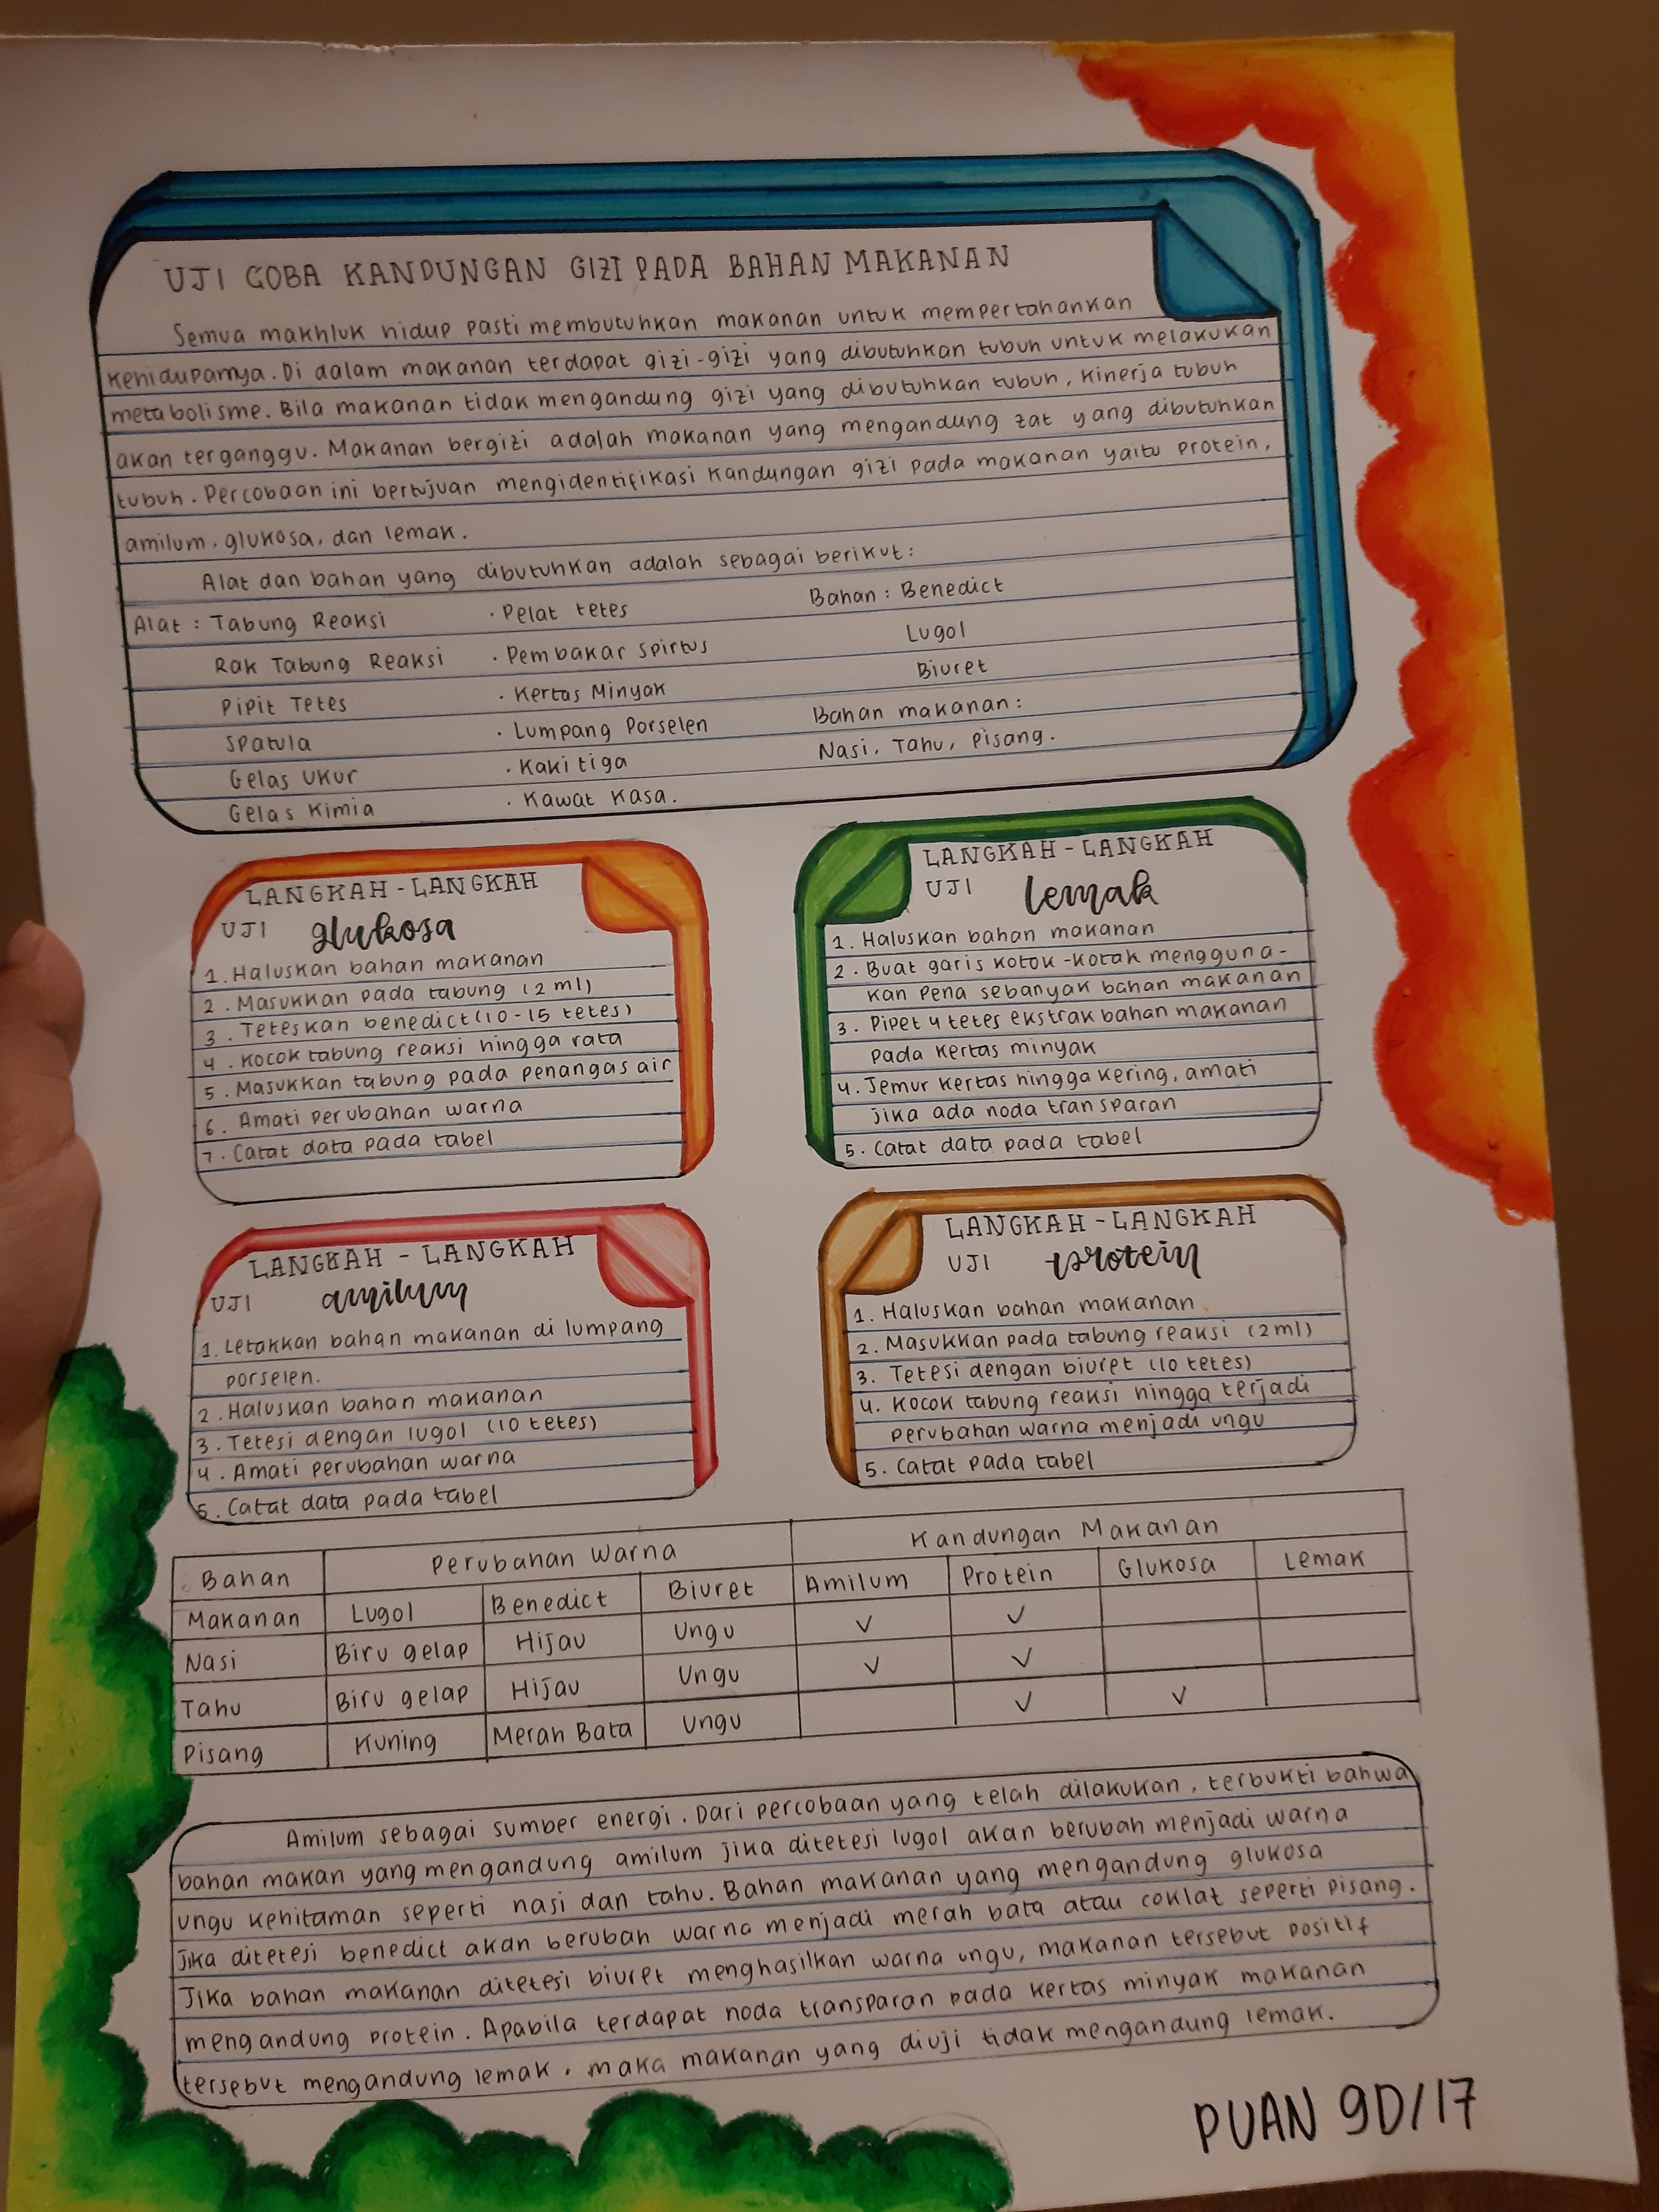 UJI COBA KANDUNGAN GIZI PADA BAHAN MAKANAN
Semua makhluk hidup pasti membutuhkan makanan untuk mempertahankan
kehidupannya. Di dalam makanan terdapat gizi-gizi yang dibutuhkan tubuh untuk melakukan
metabolisme. Bila makanan tidak mengandung gizi yang dibutuhkan tubuh, kinerja tubuh
akan terganggu. Makanan bergizi adalah makanan yang mengandung zat yang dibutuhkan
tubuh. Percobaan ini bertujuan mengidentifikasi kandungan gizi pada makanan yaitu protein,
amilum, glukosa, dan lemak.
Alat dan bahan yang dibutuhkan adalah sebagai berikut:
Alat : Tabung Reaksi · Pelat tetes Bahan : Benedict
Rak Tabung Reaksi · Pembakar spirtus Lugol
Pipit Tetes · Kertas Minyak Biuret
Spatula · Lumpang Porselen Bahan makanan :
Gelas Ukur · Kaki tiga Nasi, Tahu, Pisang.
Gelas Kimia · Kawat Kasa.
LANGKAH - LANGKAH
UJI glukosa
1. Haluskan bahan makanan
2. Masukkan pada tabung (2 ml)
3. Teteskan benedict (10-15 tetes)
4. Kocok tabung reaksi hingga rata
5. Masukkan tabung pada penangas air
6. Amati perubahan warna
7. Catat data pada tabel
LANGKAH - LANGKAH
UJI lemak
1. Haluskan bahan makanan
2. Buat garis kotok-kotak mengguna-
kan pena sebanyak bahan makanan
3. Pipet 4 tetes ekstrak bahan makanan
pada kertas minyak
4. Jemur kertas hingga kering, amati
jika ada noda transparan
5. Catat data pada tabel
LANGKAH - LANGKAH
UJI amilum
1. Letakkan bahan makanan di lumpang
porselen.
2. Haluskan bahan makanan
3. Tetesi dengan lugol (10 tetes)
4. Amati perubahan warna
5. Catat data pada tabel
LANGKAH - LANGKAH
UJI protein
1. Haluskan bahan makanan
2. Masukkan pada tabung reaksi (2ml)
3. Tetesi dengan biuret (10 tetes)
4. Kocok tabung reaksi hingga terjadi
perubahan warna menjadi ungu
5. Catat pada tabel
Bahan Perubahan Warna Kandungan Makanan
Makanan Lugol Benedict Biuret Amilum Protein Glukosa Lemak
Nasi Biru gelap Hijau Ungu ✓ ✓
Tahu Biru gelap Hijau Ungu ✓ ✓
Pisang Kuning Merah Bata Ungu ✓ ✓
Amilum sebagai sumber energi. Dari percobaan yang telah dilakukan, terbukti bahwa
bahan makan yang mengandung amilum jika ditetesi lugol akan berubah menjadi warna
ungu kehitaman seperti nasi dan tahu. Bahan makanan yang mengandung glukosa
jika ditetesi benedict akan berubah warna menjadi merah bata atau coklat seperti pisang.
Jika bahan makanan ditetesi biuret menghasilkan warna ungu, makanan tersebut positif
mengandung protein. Apabila terdapat noda transparan pada kertas minyak makanan
tersebut mengandung lemak, maka makanan yang diuji tidak mengandung lemak.
PUAN 9D/17